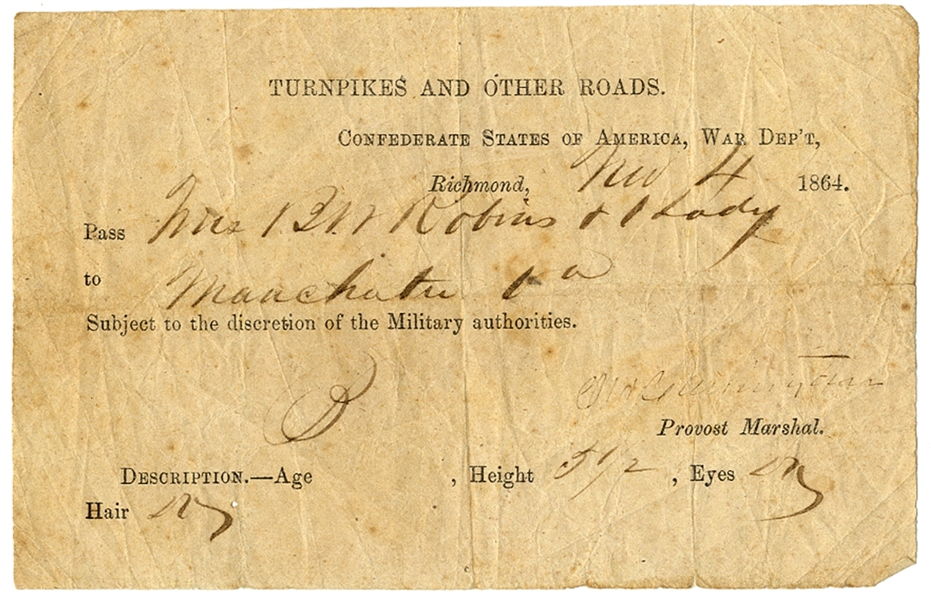 TURNPIKES AND OTHER ROADS.
CONFEDERATE STATES OF AMERICA, WAR DEP'T,
Richmond, Nov 4 1864.
Pass Mrs B W Robins & 1 Lady
to Manchester Va
Subject to the discretion of the Military authorities.
B
Provost Marshal.
DESCRIPTION.—Age , Height 5 1/2 , Eyes
Hair